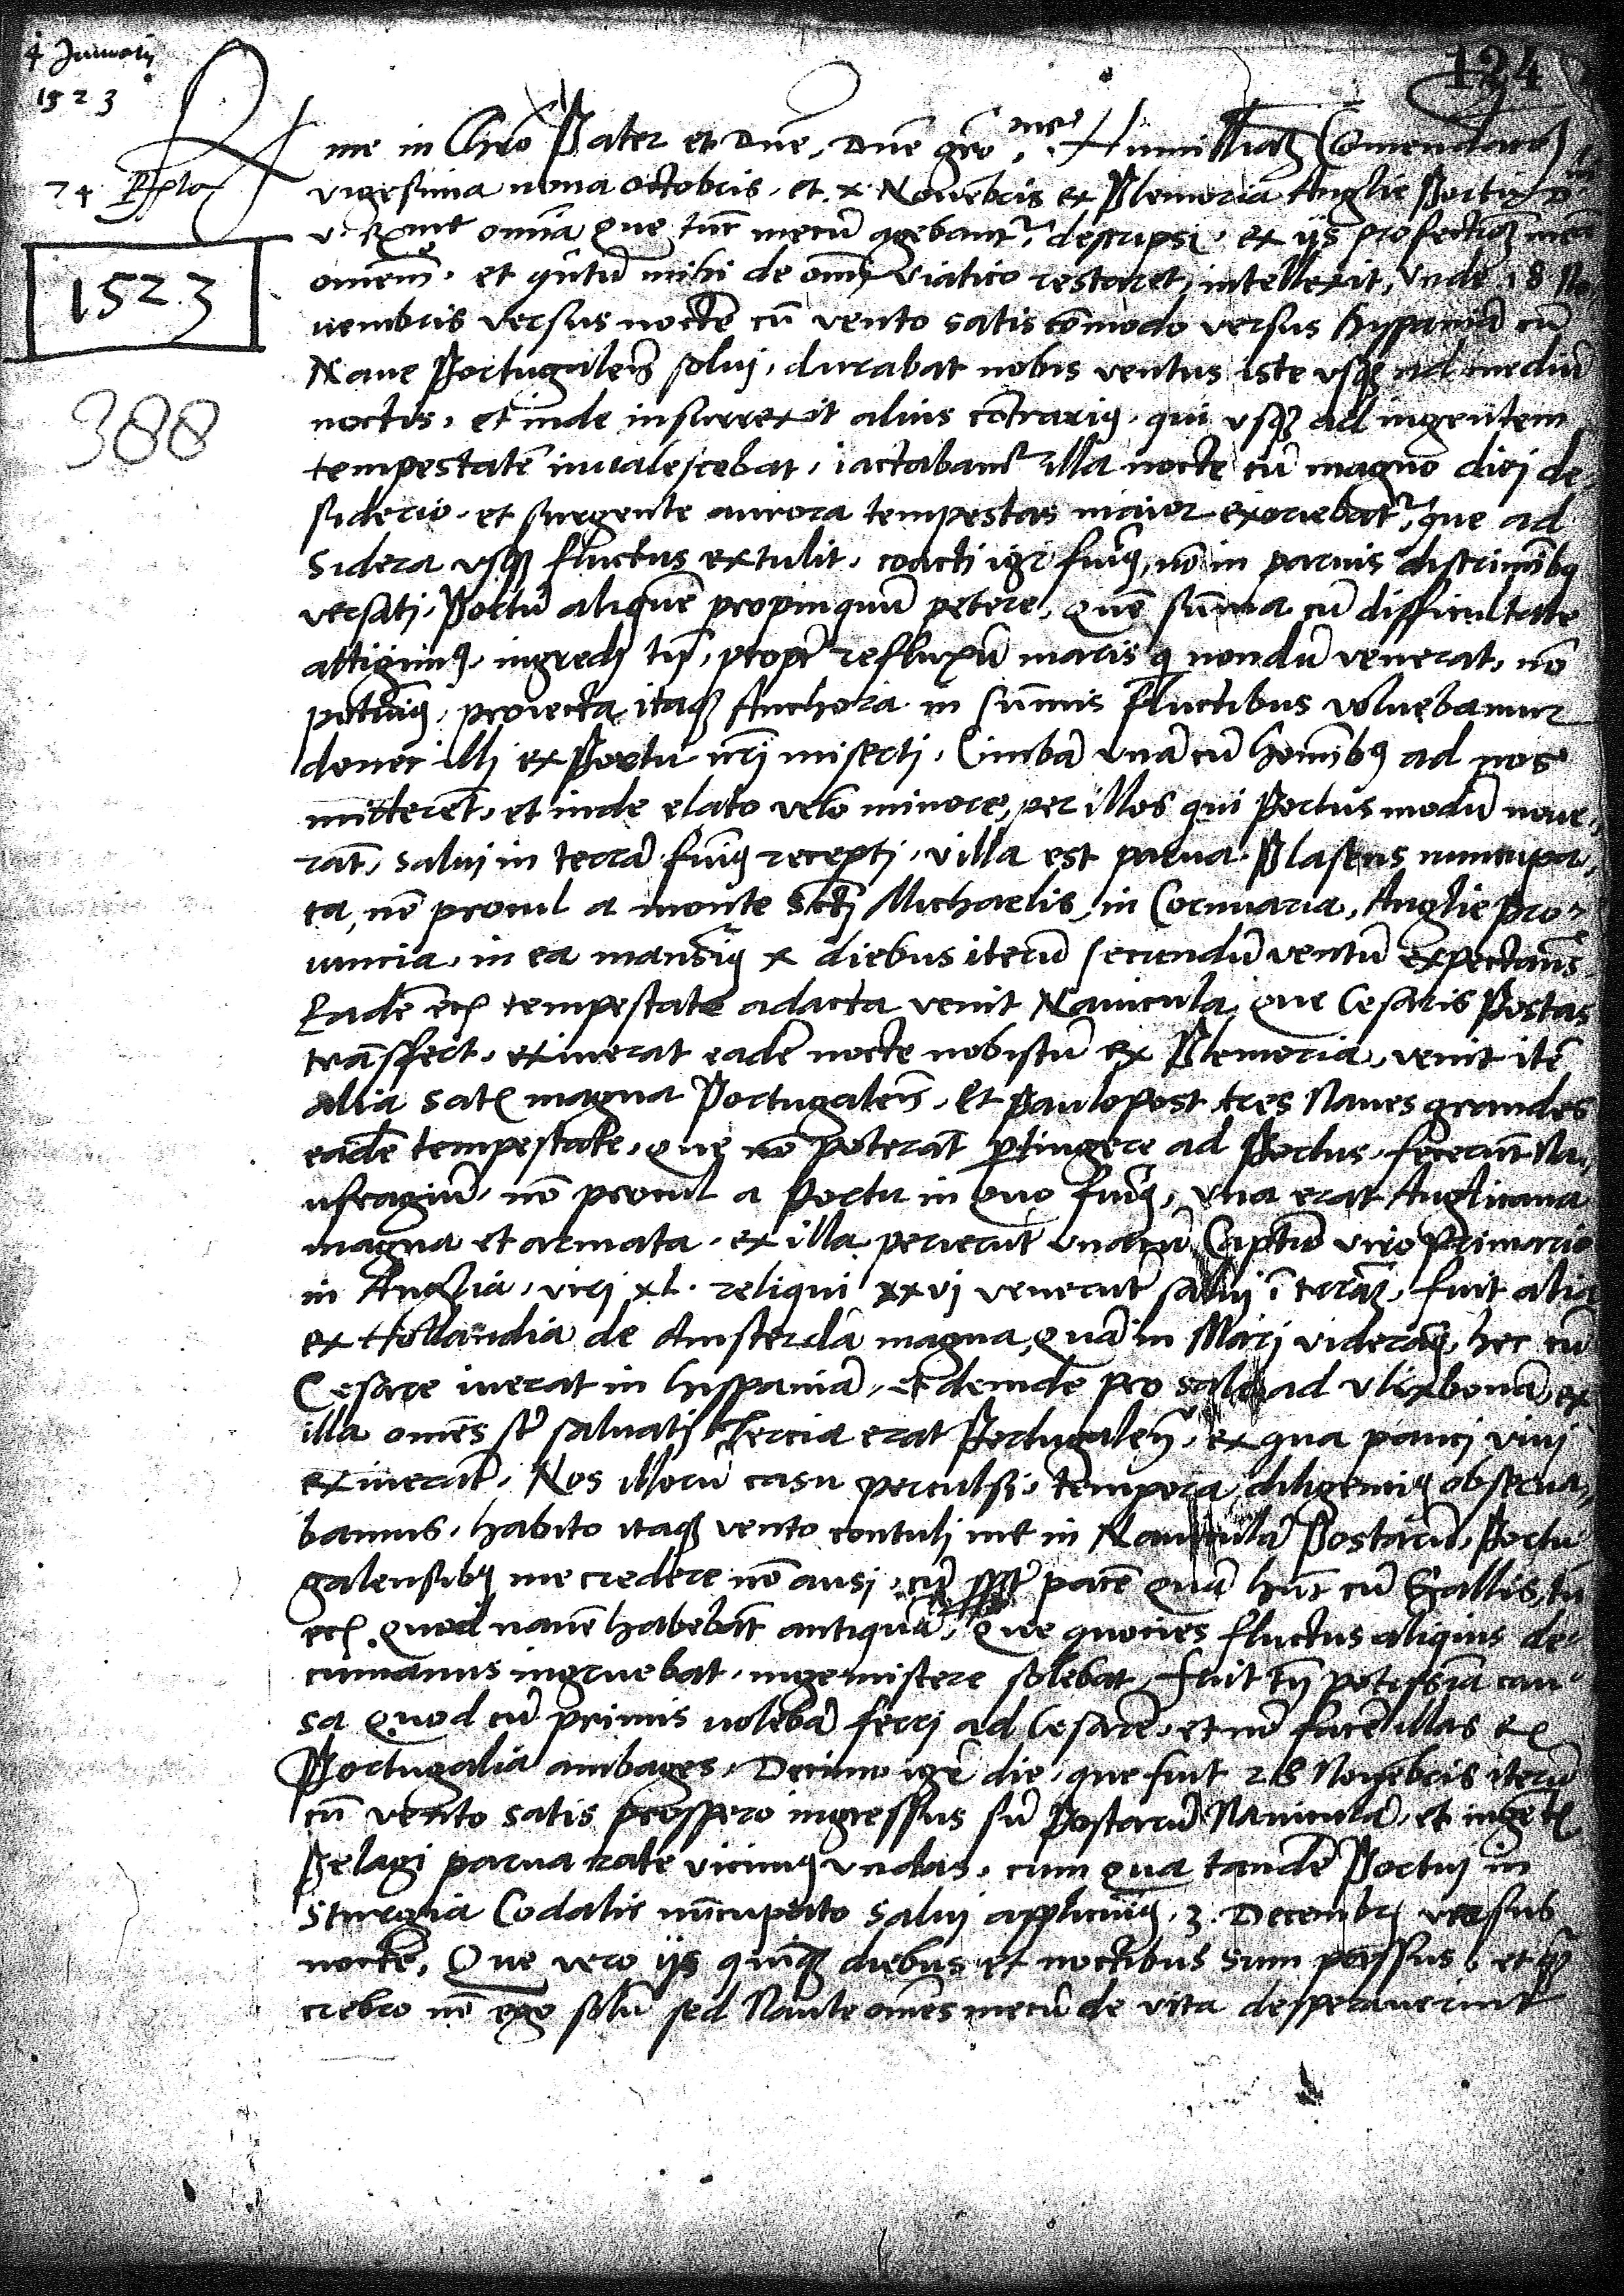 4 Januarii
1523
124
74 Epistola
1523
388
Rme in Chro Pater et Dne, Dne gro.me Humilliam Comendacoem
vigesima nona octobris et x Novembris ex Plemoria Anglie Portu D
v. Rme omnia que tunc mecum agebantur descripsi, ex ijs profectionem meam
omnem, et quantum mihi de omni viatico restaret, intellexit, Unde 18 No,
uembris versus noctem cum vento satis commodo versus hispaniam cum
Naue Portugalensi solui, durabat nobis ventus iste vsque ad medium
noctis, et inde insurrexit alius contrarius, qui vsque ad ingentem
tempestatem inualescebat, iactabamur illa nocte cum magno diei de,
siderio, et surgente aurora tempestas maior exoriebatur, que ad
Sidera vsque fluctus extulit, coacti igitur fuimus, non in paruis discriminibus
versati, Portum aliquem propinquum petere, quem summa cum difficultate
attigimus, ingredi tamen, propter refluxum maris qui nondum venerat, non
potuimus, proiecta itaque Anchora in summis fluctibus voluebamur
donec illi ex Portu nostri miserti, Cimbam vnam cum hominibus ad nos
mitterent, et inde elato velo minore, per illos qui Portus modum noue,
rant, salui in terram fuimus recepti, villa est parua Plasens nuncupa,
ta, non procul a monte Sancti Michaelis in Cornuaria, Anglie Pro,
uincia, in ea mansimus x diebus iterum secundum ventum expectantes
Eadem eciam tempestate adacta venit Nauicula, que Cesaris Postas
transfert, exiuerat eadem nocte nobiscum ex Plemoria, venit item
alia satis magna Portugalensis, Et Paulopost tres Naues grandes
eadem tempestate, que non poterant pertingere ad Portus, fecerunt Na,
ufragium, non procul a Portu in quo fuimus, vna erat Anglicana
magna et armata, ex illa perierunt vna cum Capitaneo viro Primario
in Anglia, viri xl. reliqui xxvi venerunt salui in terram, fuit alia
ex Hollandia de Amsterdam magna, quam in Mari videramus, hec cum
Cesare iuerat in hispaniam, et deinde pro sale ad vlixbonam, ex
illa omnes sunt saluati, Tercia erat Portugalensis, ex qua pauci viui
exiuerant, Nos illorum casu perculsi, tempora diligentius obserua,
bamus, habito itaque vento contuli me in Nauiculam Postarum, Portu
galensibus me credere non ausi, cum propter pacem quam habent cum Gallis, tum
eciam quod nauem habebant antiquam, que quocies fluctus aliquis de,
cumanus ingruebat, ingemiscere solebat, fuit tamen potissima cau,
sa quod cum primis volebam ferri ad Cesarem, et non facere illas ex
Portugalia ambages, Decimo igitur die, que fuit 28 Nouembris iterum
cum vento satis prospero ingressus sum Postarum Nauiculam, et ingentes
Pelagi parua rate vicimus vndas, cum qua tandem Portui in
Sturgia Codalis nuncupato salui applicuimus, 3. Decembris versus
noctem, Que vero ijs quinque diebus et noctibus sum passus, et quam
crebro non ego solum sed Naute omnes mecum de vita desperauerint